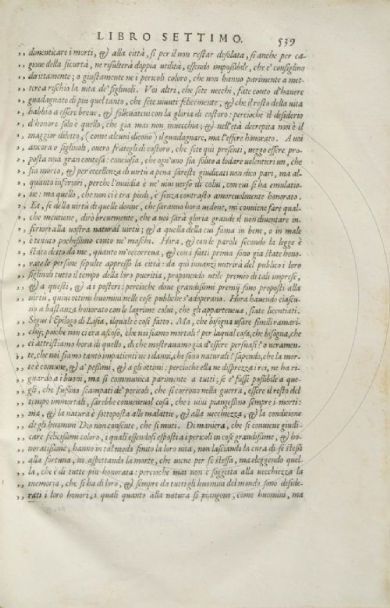 LIBRO SETTIMO. 539
,, dimenticare i morti, & alla città, sì per il non restar disolata, sì anche per ca-
,, gione della sicurtà, ne risulterà doppia utilità, essendo impossibile, che e' consiglino
,, drittamente; o giustamente ne i pericoli coloro, che non hanno parimente a met-
,, tere a rischio la vita de' figliuoli. Voi altri, che sete vecchi, fate conto d'havere
,, guadagnato di più quel tanto, che sete vivuti felicemente; & che il resto della vita
,, habbia a essere breve, & sollevatevi con la gloria di costoro: perciochè il desiderio
,, d'honore solo è quello, che già mai non invecchia; & nell'età decrepita non è il
,, maggior diletto, (come alcuni dicono) il guadagnare, ma l'essere honorato. A voi
,, ancora o figliuoli, overo fratelli di costoro, che sete qui presenti, veggo essere pro-
,, posta una gran contesa: conciosia, che ogn'uno sia solito a lodare volentieri un, che
,, sia morto, & per eccellenza di virtù a pena sareste giudicati non dico pari, ma al-
,, quanto inferiori, perche l'invidia è ne' vivi di colui, con cui si ha emulatio-
,, ne: ma quello, che non ci è tra piedi, è senza contrasto amorevolmente honorato.
,, Et, se della virtù di quelle donne, che saranno hora vedove, mi conviene fare qual-
,, che mentione, dirò brevemente, che a voi sarà gloria grande il non diventare in-
,, feriori alla nostra natural virtù; & a quella di cui fama in bene, o in male
,, è tenuto pochissimo conto ne' maschi. Hora, & con le parole secondo la legge è
,, stato detto da me, quanto m'occorreva, & con i fatti prima sono già state hono-
,, rate le persone sepulte appresso la città: da qui innanzi nutrirà del publico i loro
,, figliuoli tutto il tempo della loro pueritia, proponendo utile premio di tali imprese,
,, & a questi, & a i posteri: perciochè dove grandissimi premij sono proposti alla
,, virtù, quivi ottimi huomini nelle cose publiche s'adoperano. Hora havendo ciascu-
,, no a bastanza honorato con le lagrime colui, che gli apparteneva, siate licentiati.
,, Segue l'Epilogo di Lisia, il quale è così fatto. Ma, che bisogna usare simili ramari-
,, chij; poiche non ci era ascoso, che noi siamo mortali? per la qual cosa, che bisogna, che
,, ci attristiamo hora di quello, di che mostravamo già d'essere persuasi? o veramen-
,, te, che noi siamo tanto impatienti ne i danni, che sono naturali? sapendo, che la mor-
,, te è comune, & a' pessimi, & a gli ottimi: perciochè ella ne disprezza i rei, ne ha ri-
,, guardo a i buoni, ma si communica parimente a tutti: se e' fusse possibile a que-
,, gli, che fussino scampati de' pericoli, che si corrono nella guerra, essere il resto del
,, tempo immortali, sarebbe convenevol cosa, che i vivi piangessino sempre i morti:
,, ma, & la natura è sottoposta alle malattie, & alla vecchiezza, & la conditione
,, de gli huomini Dio non consente, che si muti. Di maniera, che si conviene giudi-
,, care felicissimi coloro, i quali essendosi esposti a i pericoli in cose grandissime, & ho-
,, noratissime, hanno in tal modo finito la loro vita, non lasciando la cura di se stessi
,, alla fortuna, ne aspettando la morte, che viene per se stessa, ma eleggendo quel-
,, la, che è di tutte più honorata: perciochè mai non è soggetta alla vecchiezza la
,, memoria, che si ha di loro, & sempre da tutti gli huomini del mondo sono deside-
,, rati i loro honori, i quali quanto alla natura si piangono, come huomini, ma